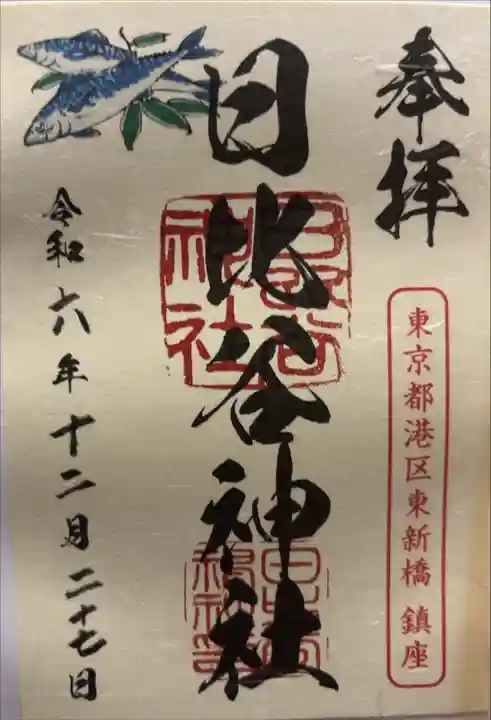 奉拝
東京都港区東新橋 鎮座
日比谷神社
日比谷神社
令和六年十二月二十七日